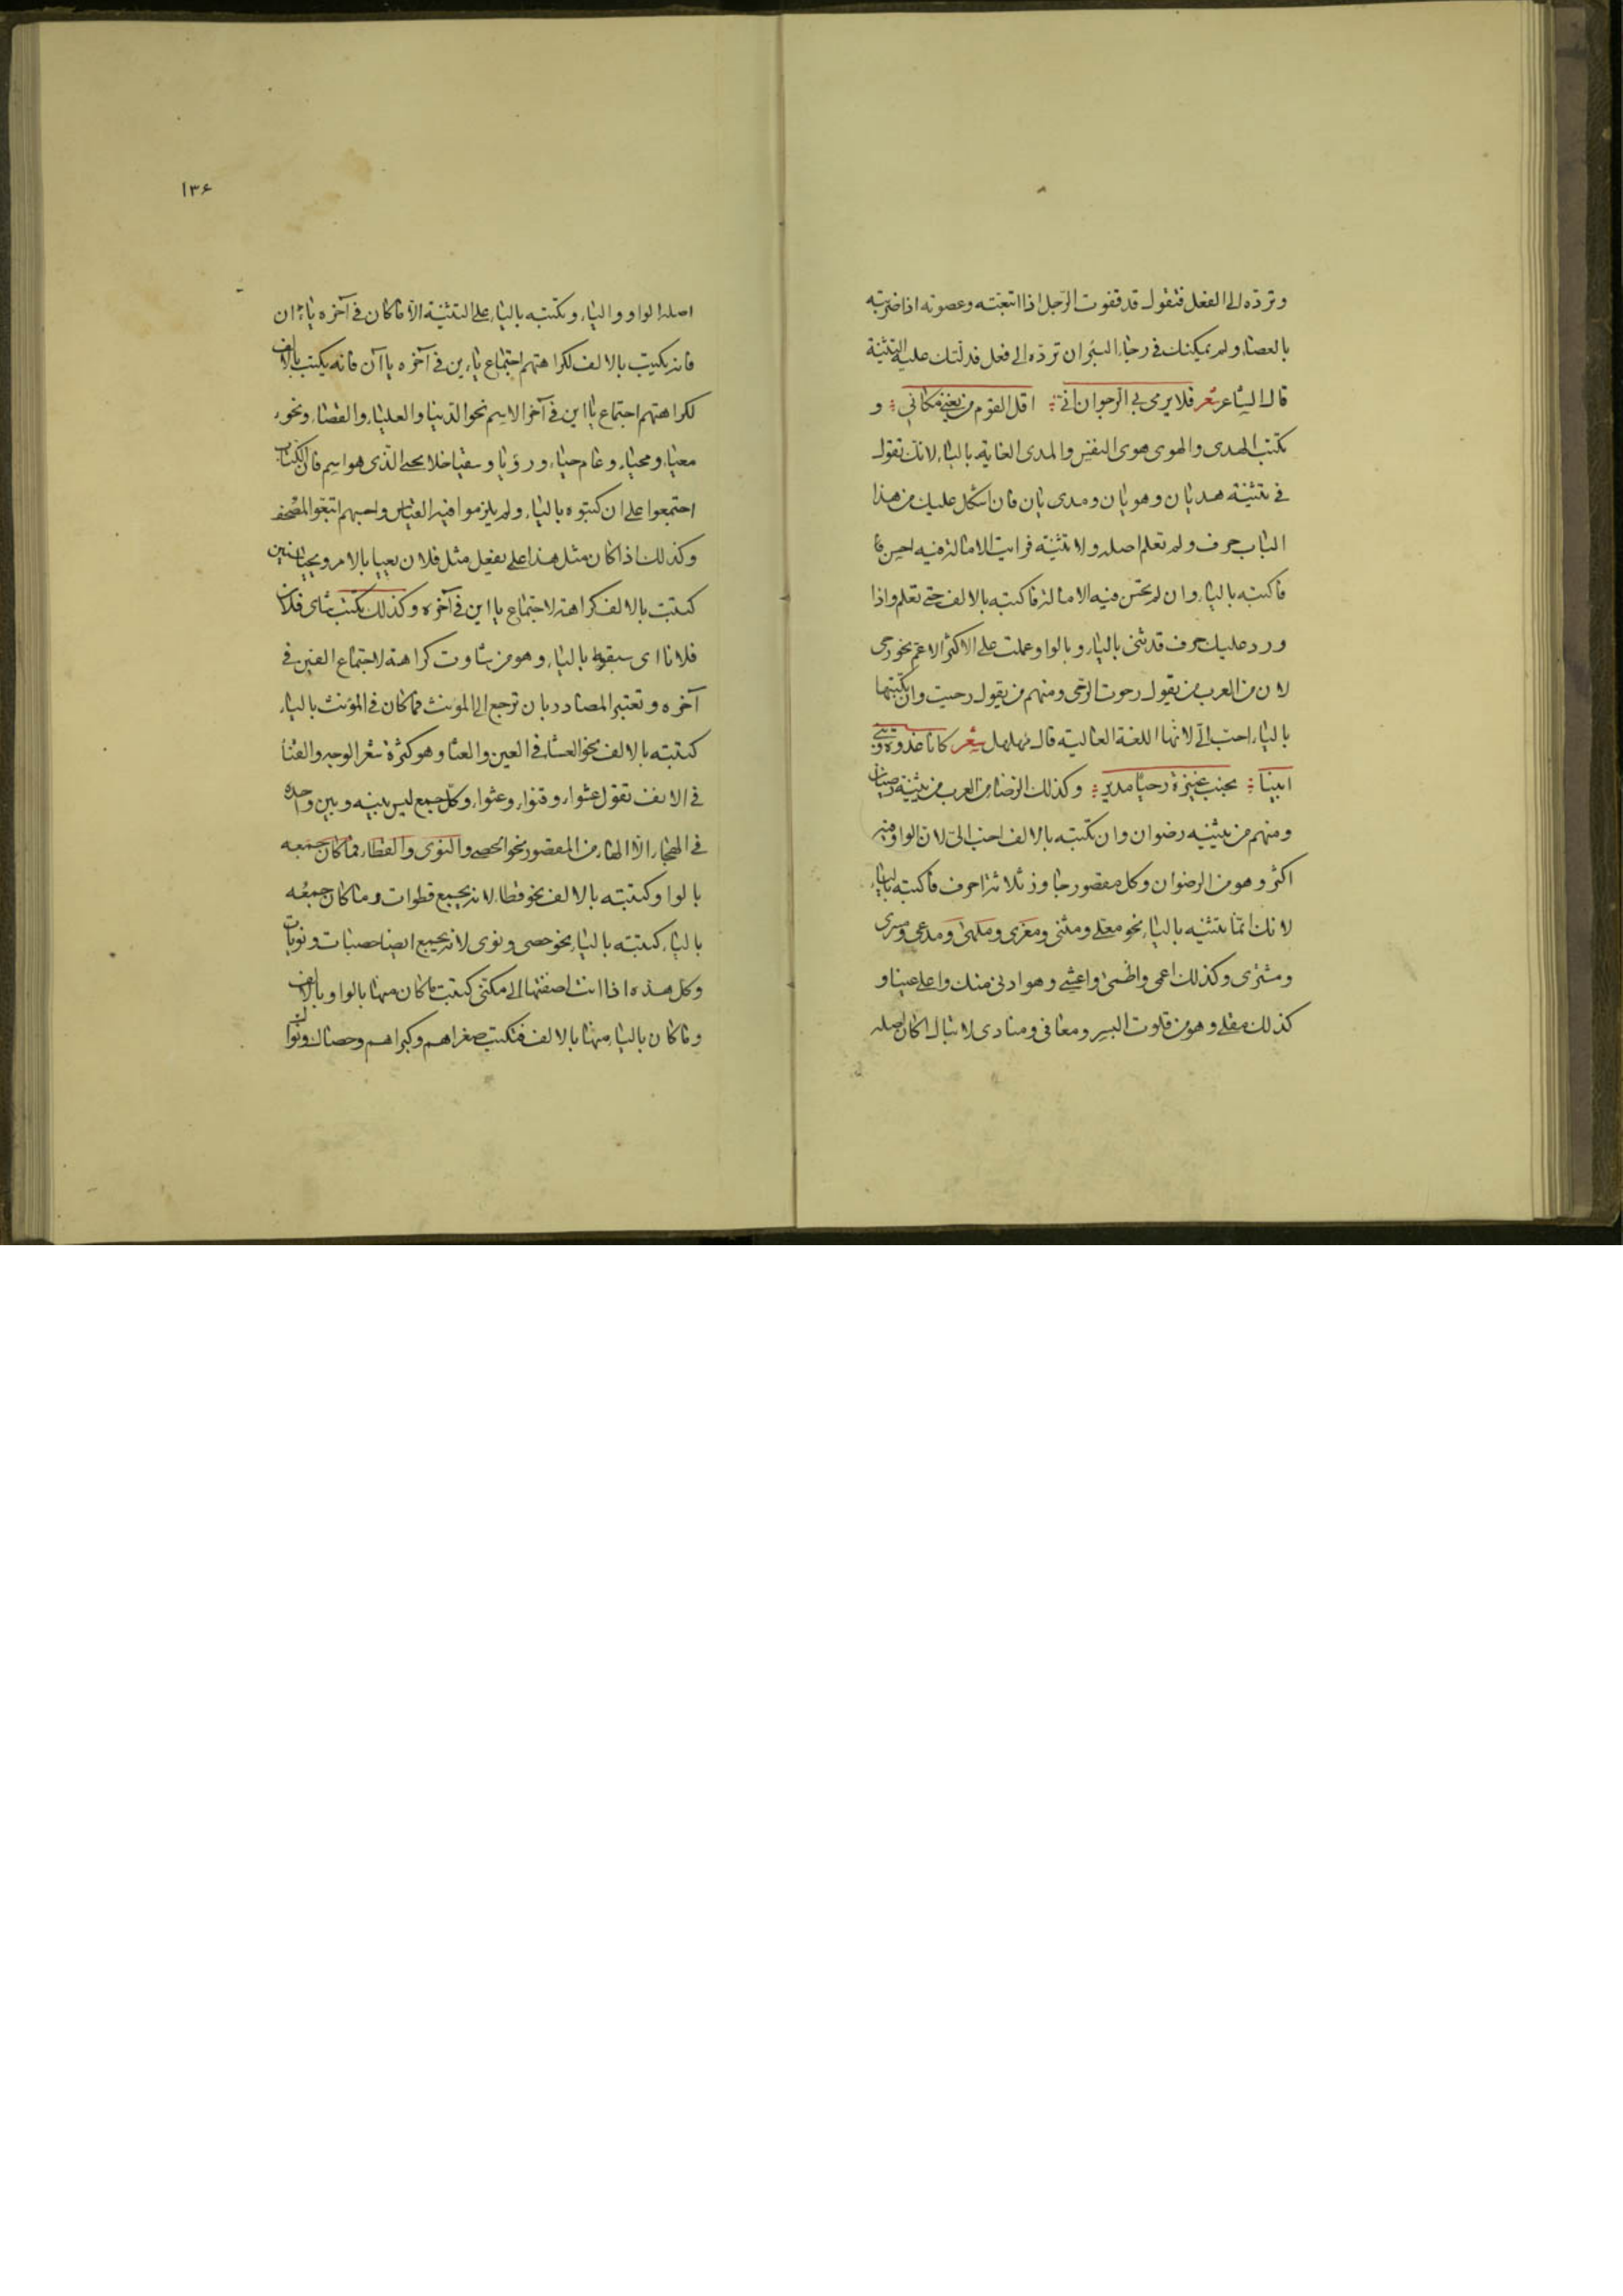 وتردّه الى الفعل فتقول قد قفوت الرّجل اذا اتبعته وعصوته اذا ضربته
بالعصا ولم يمكنك فى رجاء البئر ان تردّه الى فعل فدلّتك عليه التثنية
قال الشاعر شعر فلا يرمى بى الرجوان انى اقل القوم من يغنى مكانى و
تكتب الهدى والهوى هوى النفس والمدى الغاية بالياء لانك تقول
فى تثنيته هديان وهويان ومديان فان اشكل عليك من هذا
الباب حرف ولم تعلم اصله ولا تثنيته فرايت الامالة فيه احسن
فاكتبه بالياء وان لم تحسن فيه الامالة فاكتبه بالالف حتى تعلم واذا
ورد عليك حرف قد ثنى بالياء وبالواو عملت على الاكثر الاعم نحو رحى
لان من العرب من يقول رحوت الرحى ومنهم من يقول رحيت وان تكتبها
بالياء احبّ الىّ لانها اللغة العالية قال مهلهل شعر كانا غدوة وبنى
ابينا بجنب عنيزة رحيا مدير وكذلك الرضا من العرب من يثنيه رضيان
ومنهم من يثنيه رضوان وان تكتبه بالالف احب الىّ لان الواو فيه
اكثر وهو من الرضوان وكل مقصور جاوز ثلاثة احرف فاكتبه بالياء
لانك انما تثنيه بالياء نحو معلى ومثنى ومغزى وملهى ومدعى ومسرى
ومشترى وكذلك اعمى واظمى واعشى وهو ادنى منك واعلى عينا و
كذلك مقلى وهو من قلوت البسر ومعافى ومنادى لا تبال اكان اصله
١٣۶
اصله الواو والياء وتكتبه بالياء على التثنية الّا ما كان فى آخره ياءان
فانه يكتب بالالف لكراهتهم اجتماع ياءين فى آخره ياآن فانه يكتب بالالف
لكراهتهم اجتماع يااين فى آخر الاسم نحو الدنيا والعليا والقصيا ونحو
معيا ومحيا وعام حيا ورؤيا وسقيا خلا يحيى الذى هو اسم فان الكتاب
اجتمعوا على ان كتبوه بالياء ولم يلزموا فيه القياس واحسبهم اتبعوا المصحف
وكذلك اذا كان مثل هذا على يفعل مثل فلان يعيا بالامر ويحيا سنين
كتبت بالالف كراهة لاجتماع يااين فى آخره وكذلك تكتب شاى فلان
فلانا اى سبقه بالياء وهو من شاوت كراهة لاجتماع الفين فى
آخره وتعتبر المصادر بان ترجع الى المونث فما كان فى المؤنث بالياء
كتبته بالالف نحو العشا فى العين والعثا وهو كثرة شعر الوجه والقنا
فى الانف تقول عشواء وقنواء وعثواء وكل جمع ليس بينه وبين واحده
فى الهجاء الّا الهاء من المقصور نحو الحصى والنوى والقطا فما كان جمعه
بالواو كتبته بالالف نحو قطا لانه يجمع قطوات وما كان جمعه
بالياء كتبته بالياء نحو حصى ونوى لانه يجمع ايضا حصيات ونويات
وكل هذه اذا انت اضفتها الى مكنى كتبت ما كان منها بالواو بالالف
وما كان بالياء منها بالالف فتكتب صغراهم وكبراهم وحصاك ونوا